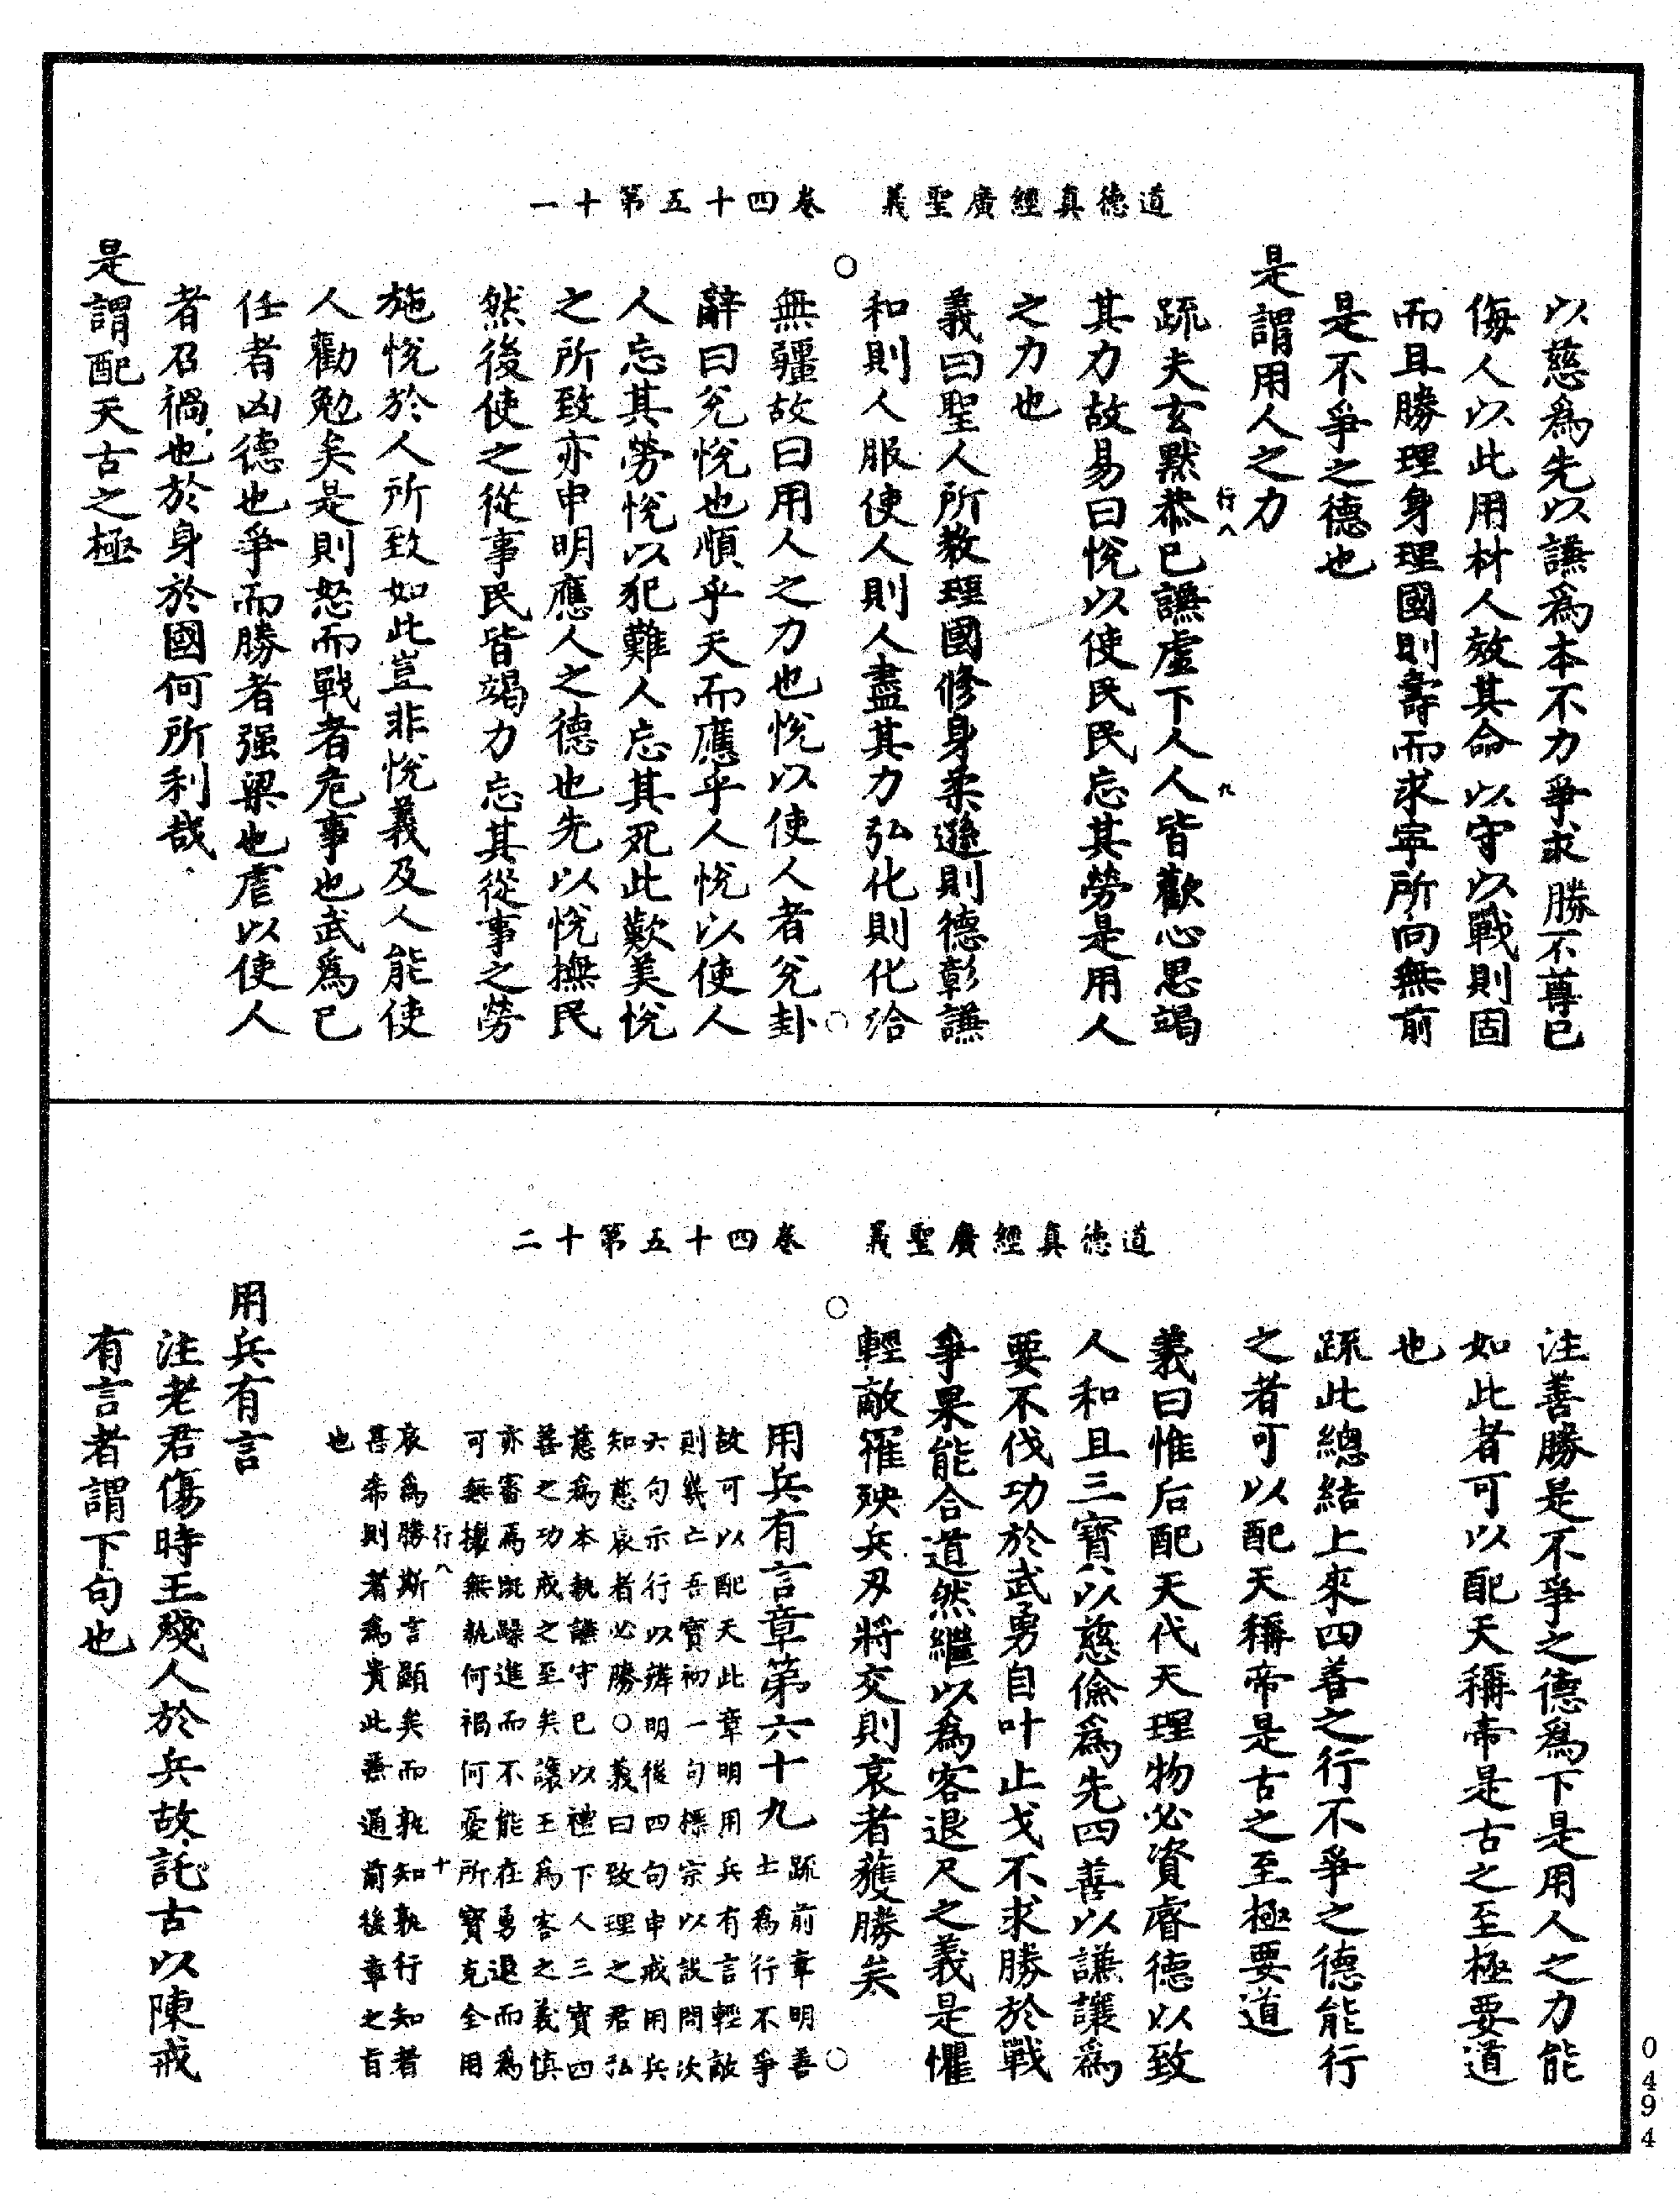 道德真經廣聖義　卷四十五第十一
以慈爲先以謙爲本不力爭求勝不尊己
侮人以此用材人效其命以守以戰則固
而且勝理身理國則壽而求寧所向無前
是不爭之德也
是謂用人之力
疏夫玄默恭己謙虛下人人皆歡心思竭
行八
九
其力故易曰悅以使民民忘其勞是用人
之力也
義曰聖人所教理國修身柔遜則德彰謙
和則人服使人則人盡其力弘化則化洽
無疆故曰用人之力也悅以使人者兌卦
辭曰兌悅也順乎天而應乎人悅以使人
人忘其勞悅以犯難人忘其死此歎美悅
之所致亦申明應人之德也先以悅撫民
然後使之從事民皆竭力忘其從事之勞
施悅於人所致如此豈非悅義及人能使
人勸勉矣是則怒而戰者危事也武爲己
任者凶德也爭而勝者强梁也虐以使人
者召禍也於身於國何所利哉
是謂配天古之極
道德真經廣聖義　卷四十五第十二
注善勝是不爭之德爲下是用人之力能
如此者可以配天稱帝是古之至極要道
也
疏此總結上來四善之行不爭之德能行
之者可以配天稱帝是古之至極要道
義曰惟后配天代天理物必資睿德以致
人和且三寶以慈儉爲先四善以謙讓爲
要不伐功於武勇自叶止戈不求勝於戰
爭果能合道然繼以爲客退尺之義是懼
輕敵罹殃兵刃將交則哀者獲勝矣
用兵有言章第六十九
疏前章明善
士爲行不爭
故可以配天此章明用兵有言輕敵
則幾亡吾寶初一句標宗以設問次
六句示行以辨明後四句申戒用兵
知慈哀者必勝○義曰致理之君弘
慈爲本執謙守己以禮下人三寶四
善之功戒之至矣讓王爲客之義慎
亦審焉旣躁進而不能在勇退而爲
可無攘無執何禍何憂所寶克全用
行八
十
哀爲勝斯言顯矣而孰知孰行知者
甚希則者爲貴此乗通前後章之旨
也
用兵有言
注老君傷時王殘人於兵故託古以陳戒
有言者謂下句也
0494